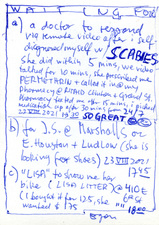 WAITING FOR
a) a doctor to respond
via remote video after I self-
diagnosed myself w/ SCABIES
She did within 5 mins, we video
called for 10 mins, she prescribed me
PERMETHRIN + called it into my
Pharmacy @ Clinton & Grand St.
Pharmacy
13 VIII 2021
SO GREAT
b) for J.S. @ Marshalls on
E. Houston + Ludlow (she is
looking for shoes) 23 VIII 2021
1745
c) "LISA" to show me her
bike (LISA LITTER) @ 410 E
(I bought it for 125, she
wanted $175
1800